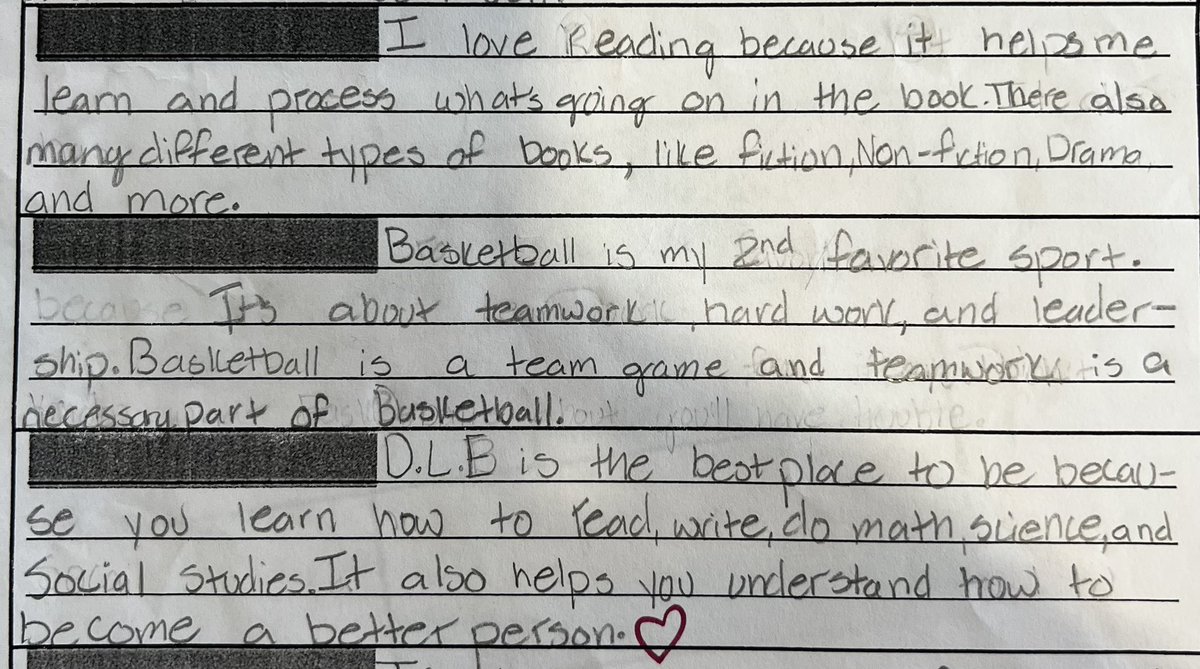 I love Reading because it helps me
learn and process whats going on in the book. There also
many different types of books, like fiction, Non-fiction, Drama
and more.
Basketball is my 2nd favorite sport.
because It's about teamwork, hard work, and leader-
ship. Basketball is a team game and teamwork is a
necessary part of Basketball.
D.L.B is the best place to be becau-
se you learn how to read, write, do math, science, and
Social Studies. It also helps you understand how to
become a better person.